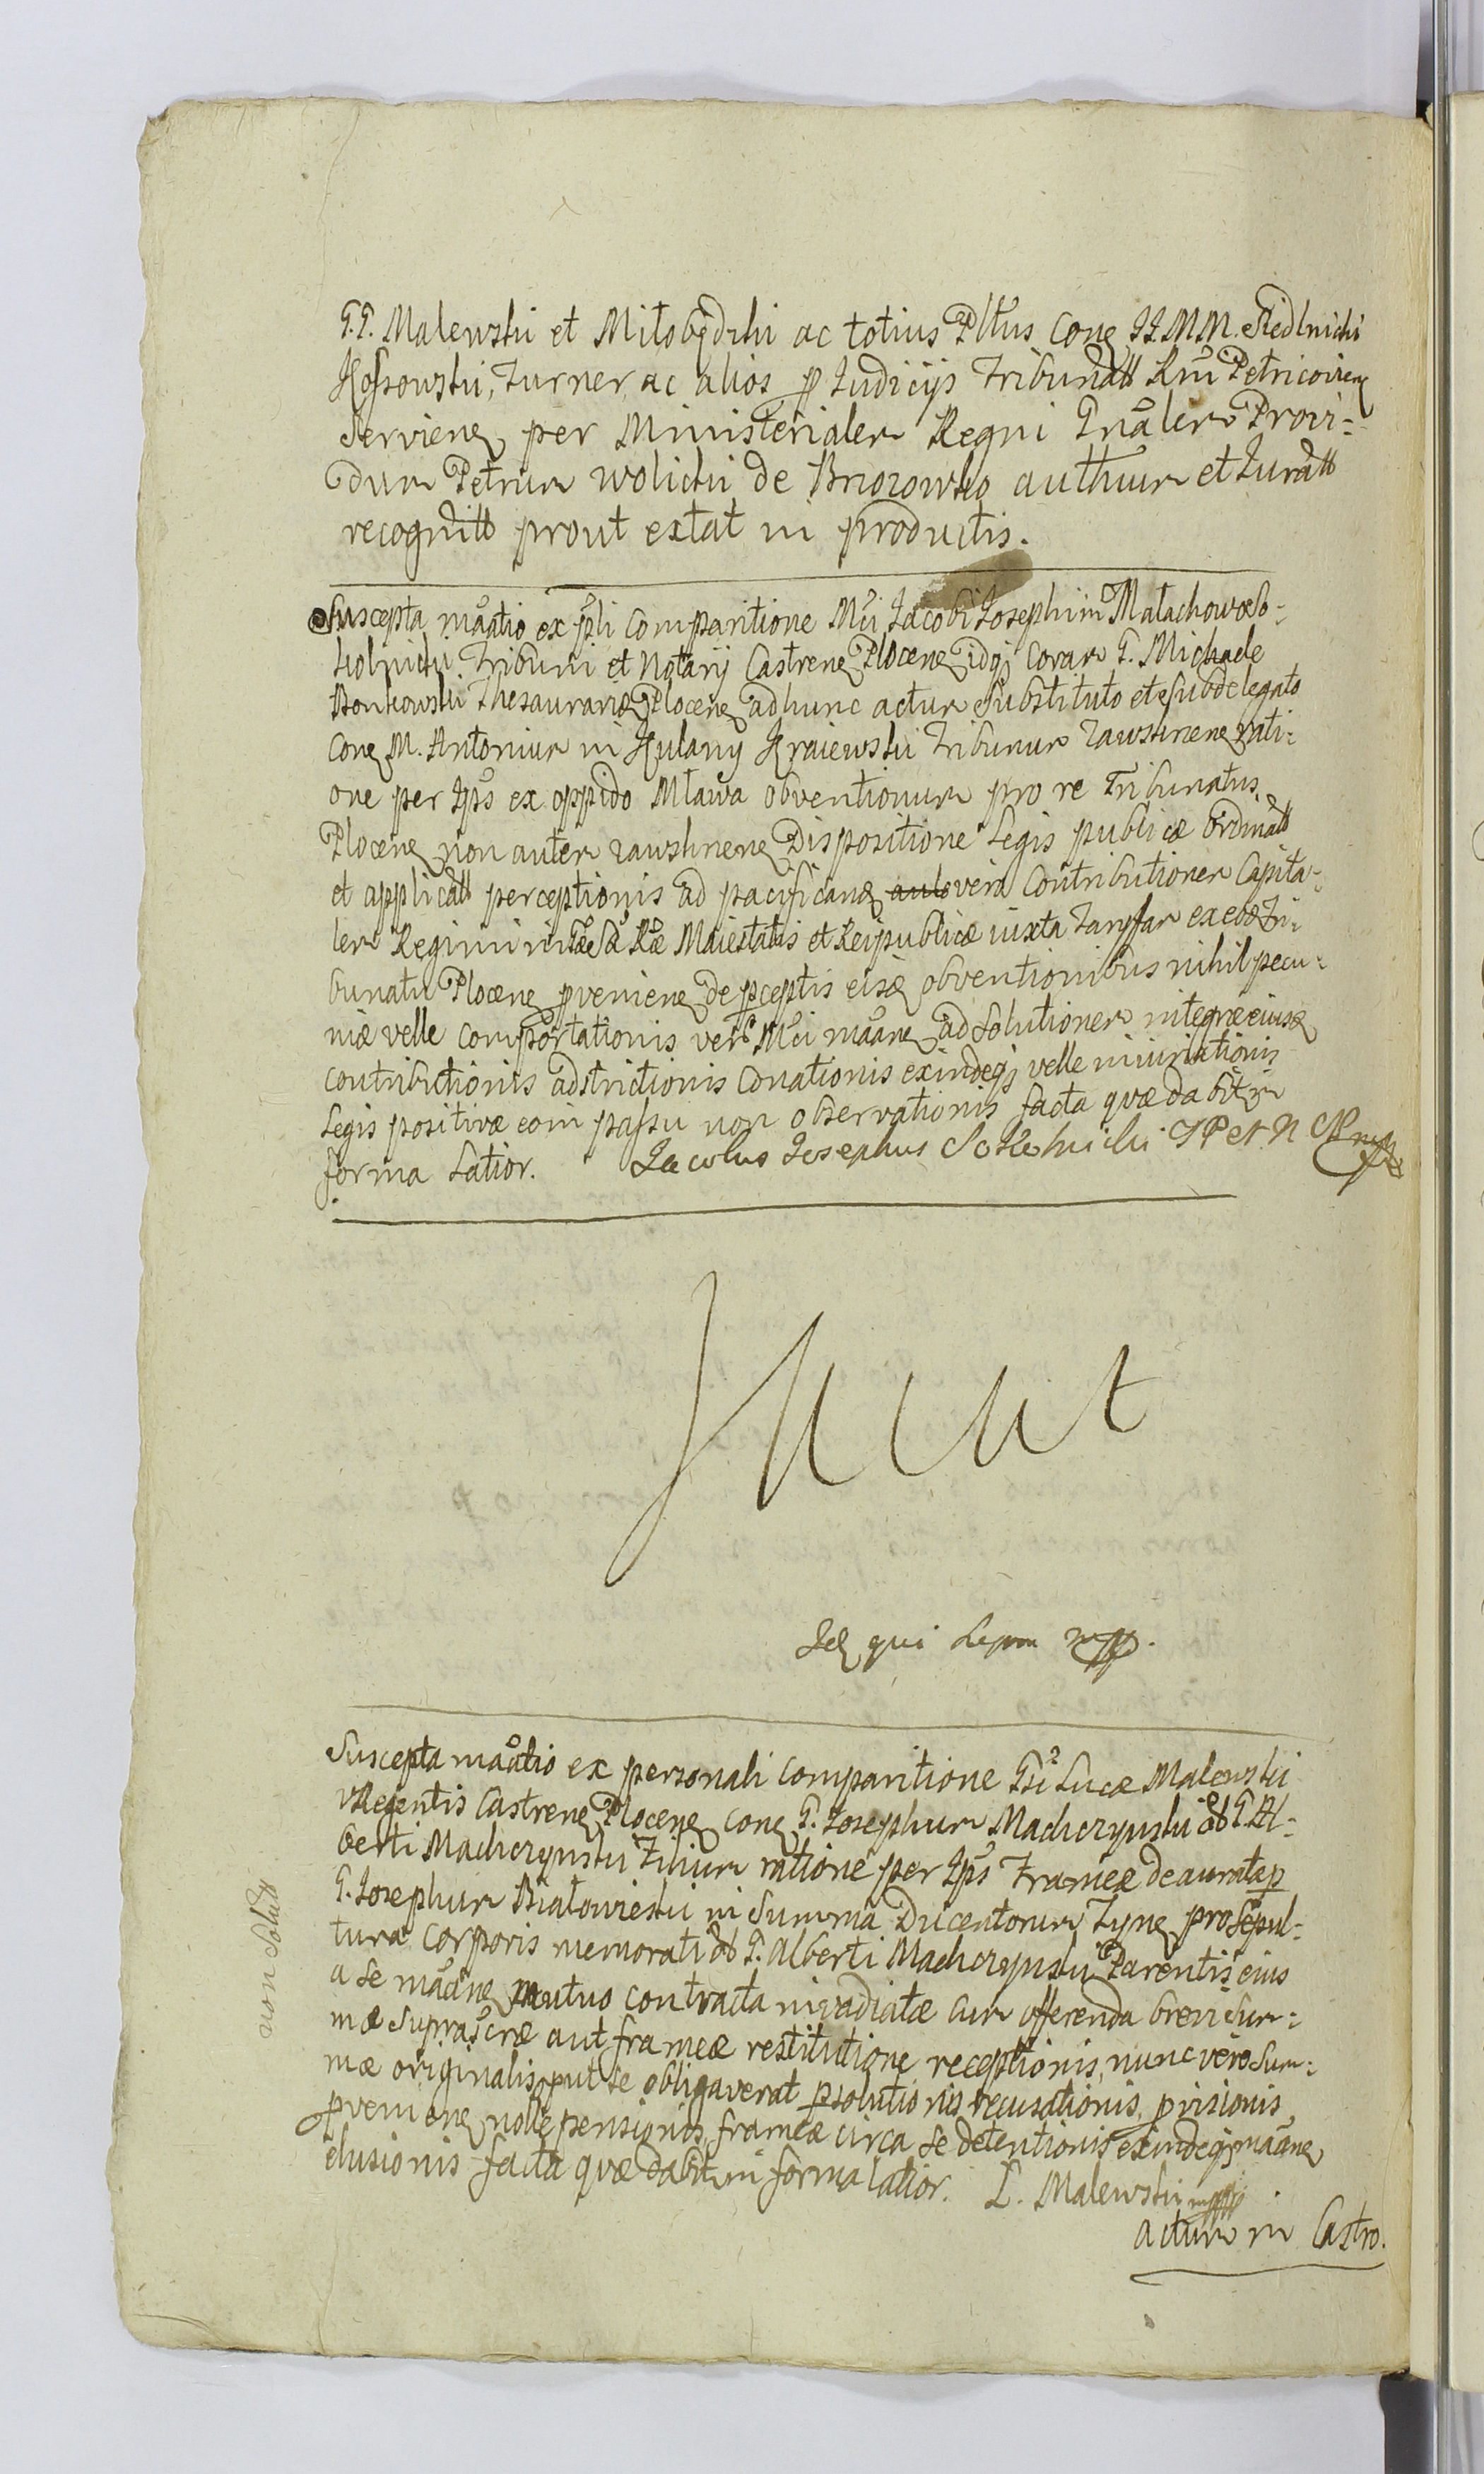 G.G. Malewski et Miłobędzki ac totius Pltus Conq JJ.MM. Siedlnicki
Kossowski, Turner, ac alios p Judicijs Tribunall Rni Petricovienq
Servienq per Ministerialem Regni Gnalem Provi=
dum Petrum Wolicki de Brzozowko authum et Juratt
recognitt prout extat in productis.
Suscepta maãtio ex psli Comparitione Mci Jacobi Josephi in Małachowo So=
kolnicki Tribuni et Notarij Castrenq Plocenq idqj Coram G. Michaele
Bonkowski Thesaurario Plocenq ad hunc actum Substituto et Subdelegato
Conq M. Antonium in Kulany Kraiewski Tribunum Zawskrnenq rati=
one per Jps ex oppido Mława obventionum pro re Tribunatus
Plocenq non autem zawskrnenq Dispositione Legis publicæ Ordinatt
et applicatt perceptionis ad pacificanq vero Contributionem Capita=
lem Regiminis Sæ Ræ Maiestatis et Reipublicæ iuxta Taryffam ex eodq Tri=
bunatu Plocenq pvenienq de pceptis eisdq obventionibus nihil pecu=
niæ velle comportationis vero Mci maãnq ad Solutionem integræ eiusdq
contributionis adstrictionis Conationis exindeqj velle iniuriationis
Legis positivæ eoin passu non observationis facta quæ dabitr in
forma Latior. Jacobus Josephus Sokolnicki TP et N CP mpp
Jdq qui supra mpp.
Suscepta maãtio ex personali Comparitione Gsi Lucæ Malewski
VRegentis Castrenq Plocenq Conq G. Josephum Machczynski olb G. Al=
berti Machczynski Filium ratione per Jps Frameæ deauratæ p
G. Josephum Białowieski in Summa Ducentorum Tynq pro Sepul=
tura Corporis memorati olb G. Alberti Machczynski Parentis eius
a se maãnq mutuo contracta invadiatæ Cum offerenda brevi Sum=
mæ supra scræ aut frameæ restitutione receptionis, nunc vero Sum=
mæ originalis put se obligaverat psolutionis recusationis, pvisionis
pvenienq nolle pensionis, frameæ circa se detentionis exindeqj maãnq
elusionis facta quæ dabitr in forma latior. L. Malewski mpp
Actum in Castro.
non Solutt